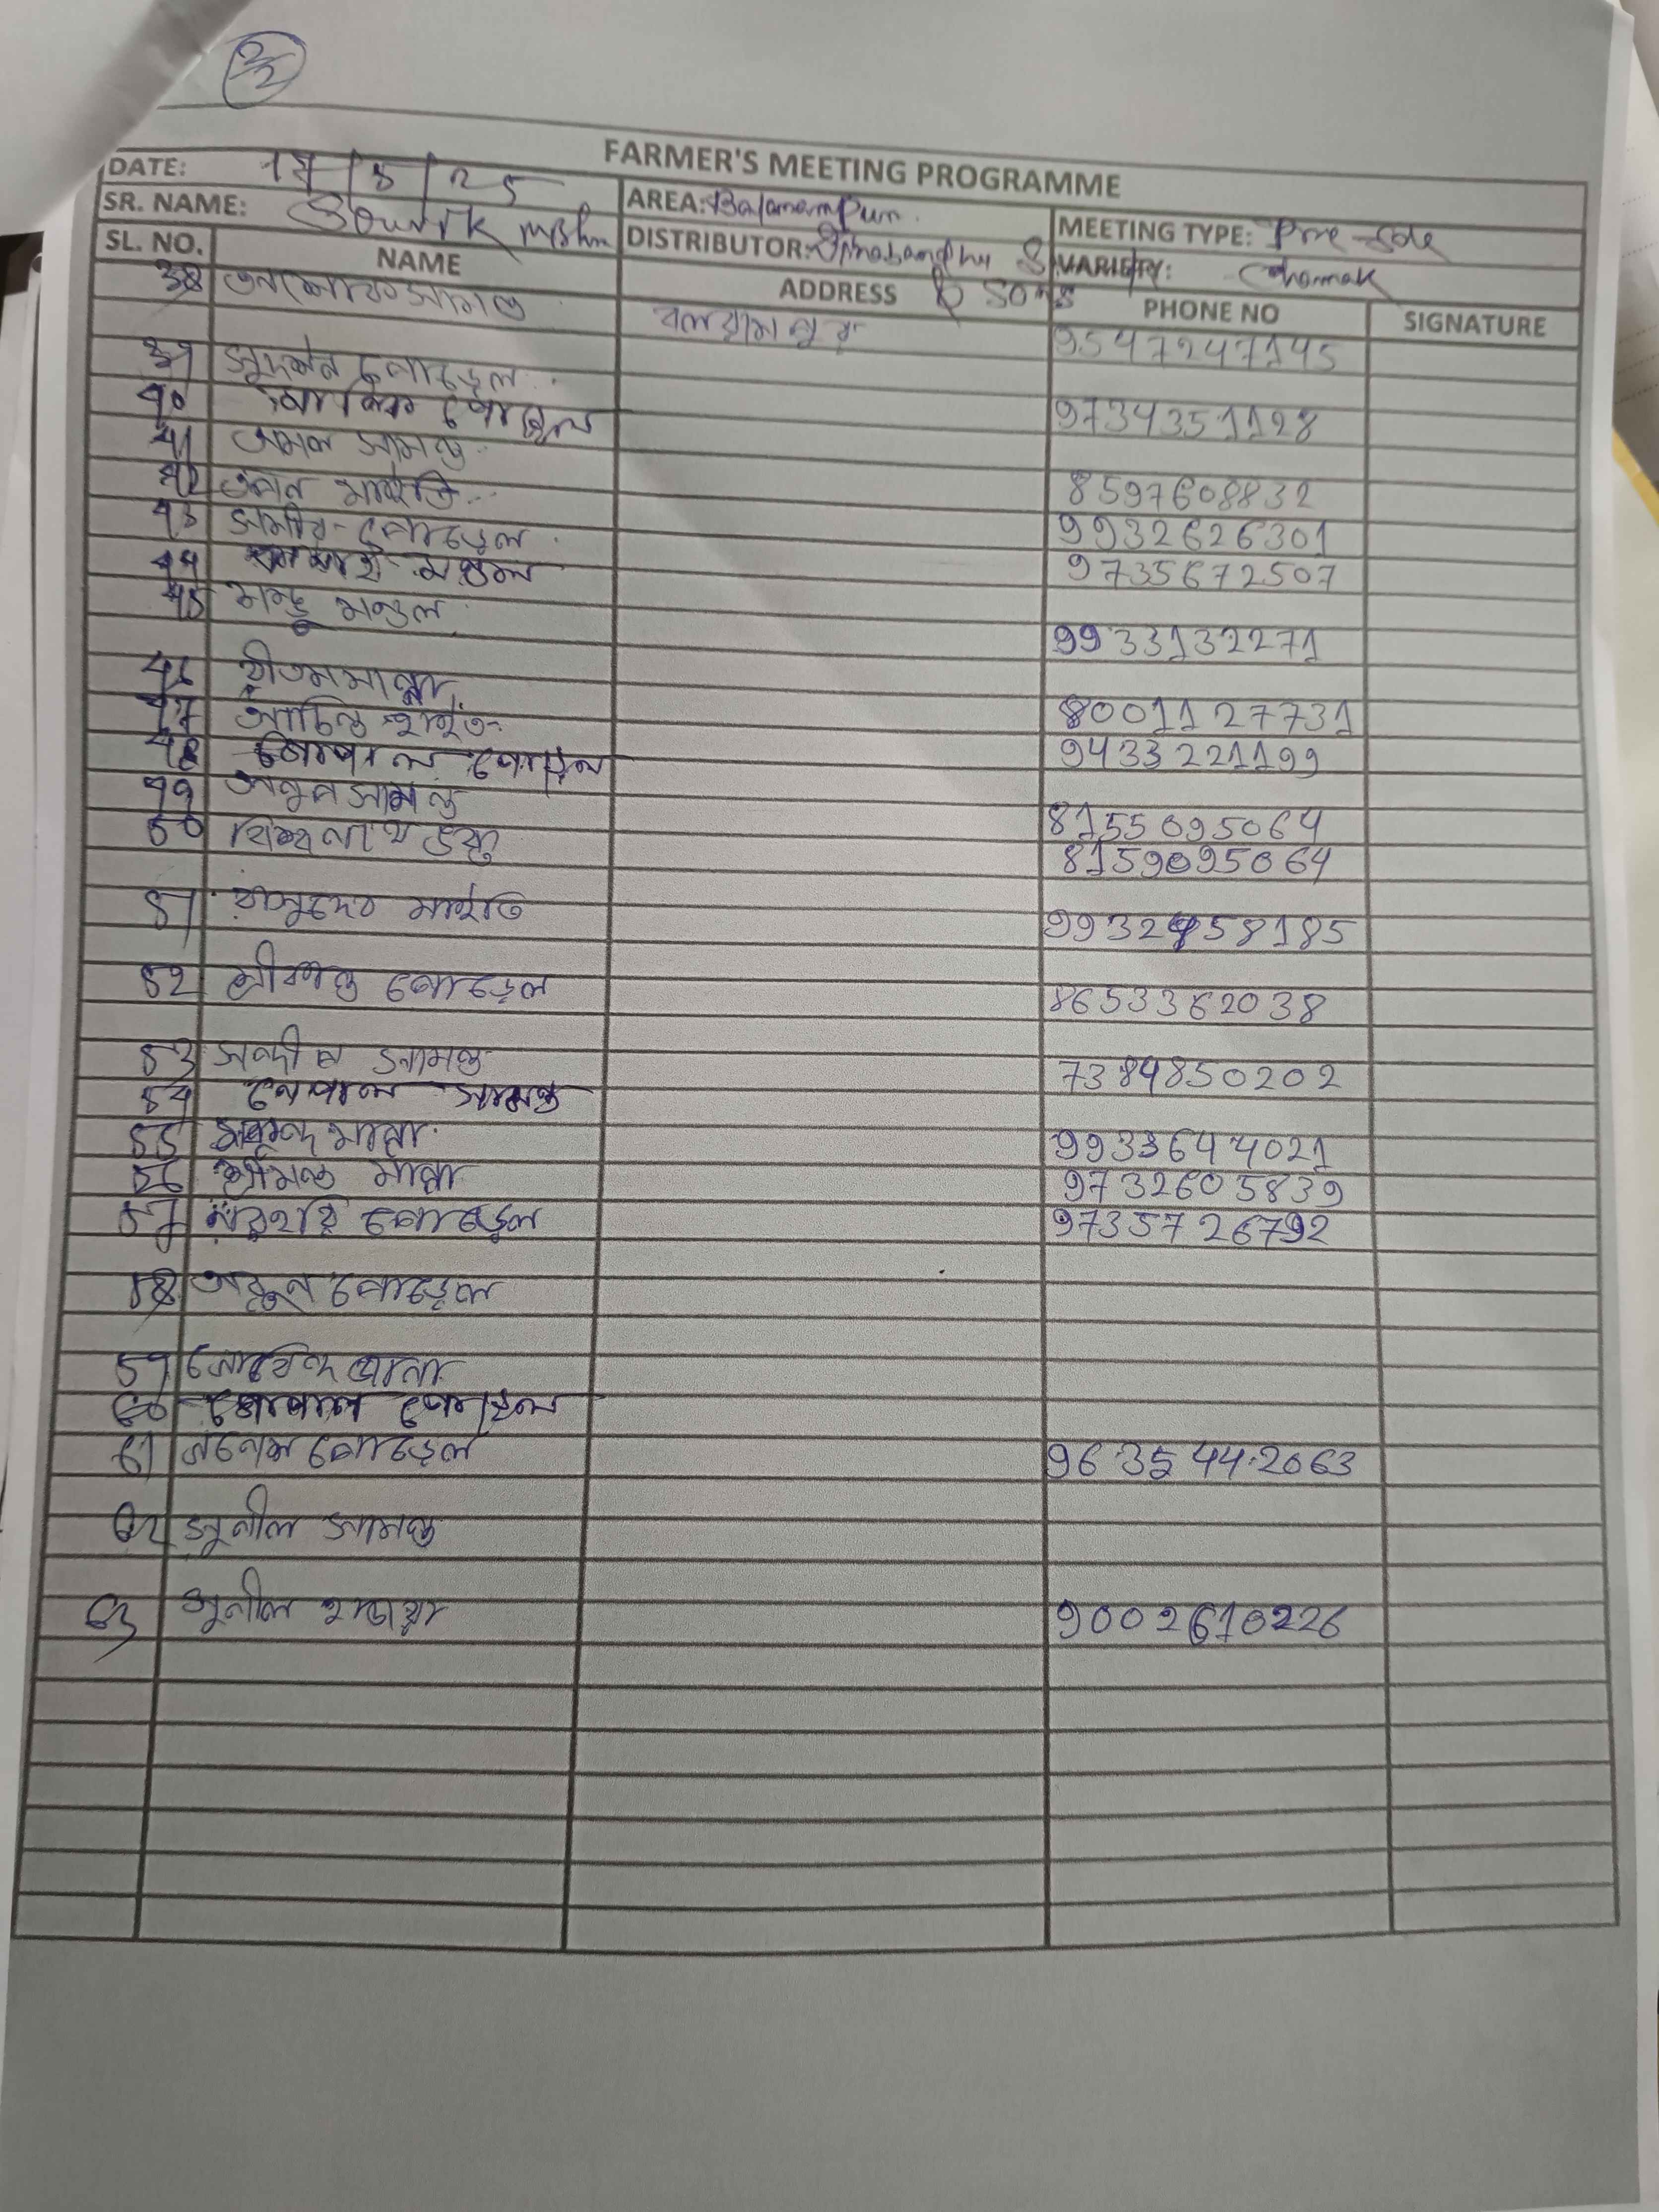 2/2
FARMER'S MEETING PROGRAMME
DATE: 17/5/25 AREA: Balarampur MEETING TYPE: Pre-Sale
SR. NAME: Souvik DISTRIBUTOR: Dinabandhu & SONS VARIETY: Chamak
SL. NO. NAME ADDRESS PHONE NO SIGNATURE
38 অশোক সামন্ত বলরামপুর 9547247145
39 সুদর্শন পোড়েল 9734351128
40 পোড়েল
41 অমল সামন্ত 8597608832
42 তপন মাইতি 9932626301
43 সমীর পোড়েল 9735672507
44 মণ্ডল
45 মন্টু মন্ডল 9933132271
46 প্রীতম মান্না 8001127731
47 9433221199
48 গোপাল পোড়েল
49 অনুপ সামন্ত 8155095064
50 বিশ্বনাথ 8159095064
51 বাসুদেব মাইতি 9932958185
52 শ্রীকান্ত পোড়েল 8653362038
53 সন্দীপ সামন্ত 7384850202
54 নেপাল সামন্ত
55 মান্না 9933644021
56 শ্রীমন্ত মান্না 9732605839
57 নরহরি পোড়েল 9735726792
58 অরুন পোড়েল
59 গোবিন্দ মান্না
60 গোপাল পোড়েল
61 গনেশ পোড়েল 9635442063
62 সুনীল সামন্ত
63 সুনীল হাজরা 9002610226